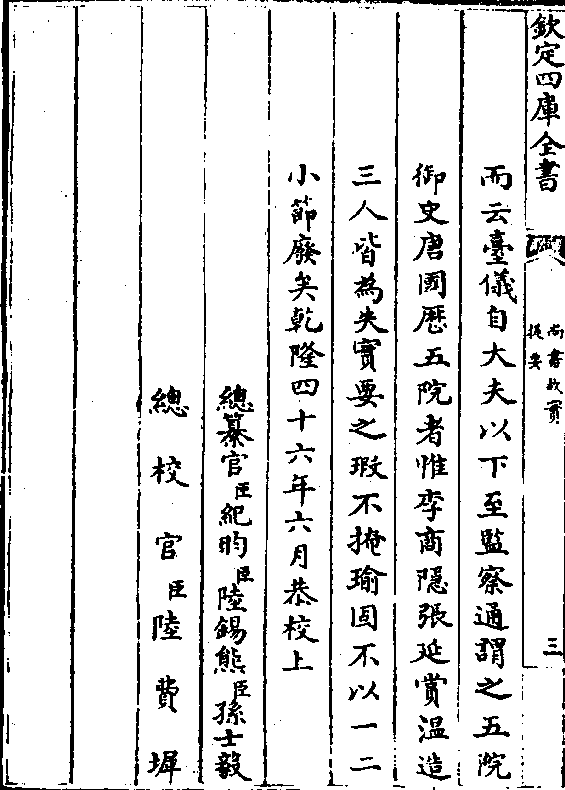 欽定四庫全書
尚書故實
提要
三
而云臺儀自大夫以下至監察通謂之五院
御史唐國歷五院者惟李商隱張延賞溫造
三人皆為失實要之瑕不掩瑜固不以一二
小節廢矣乾隆四十六年六月恭校上
總纂官臣紀昀臣陸錫熊臣孫士毅
總校官臣陸費墀